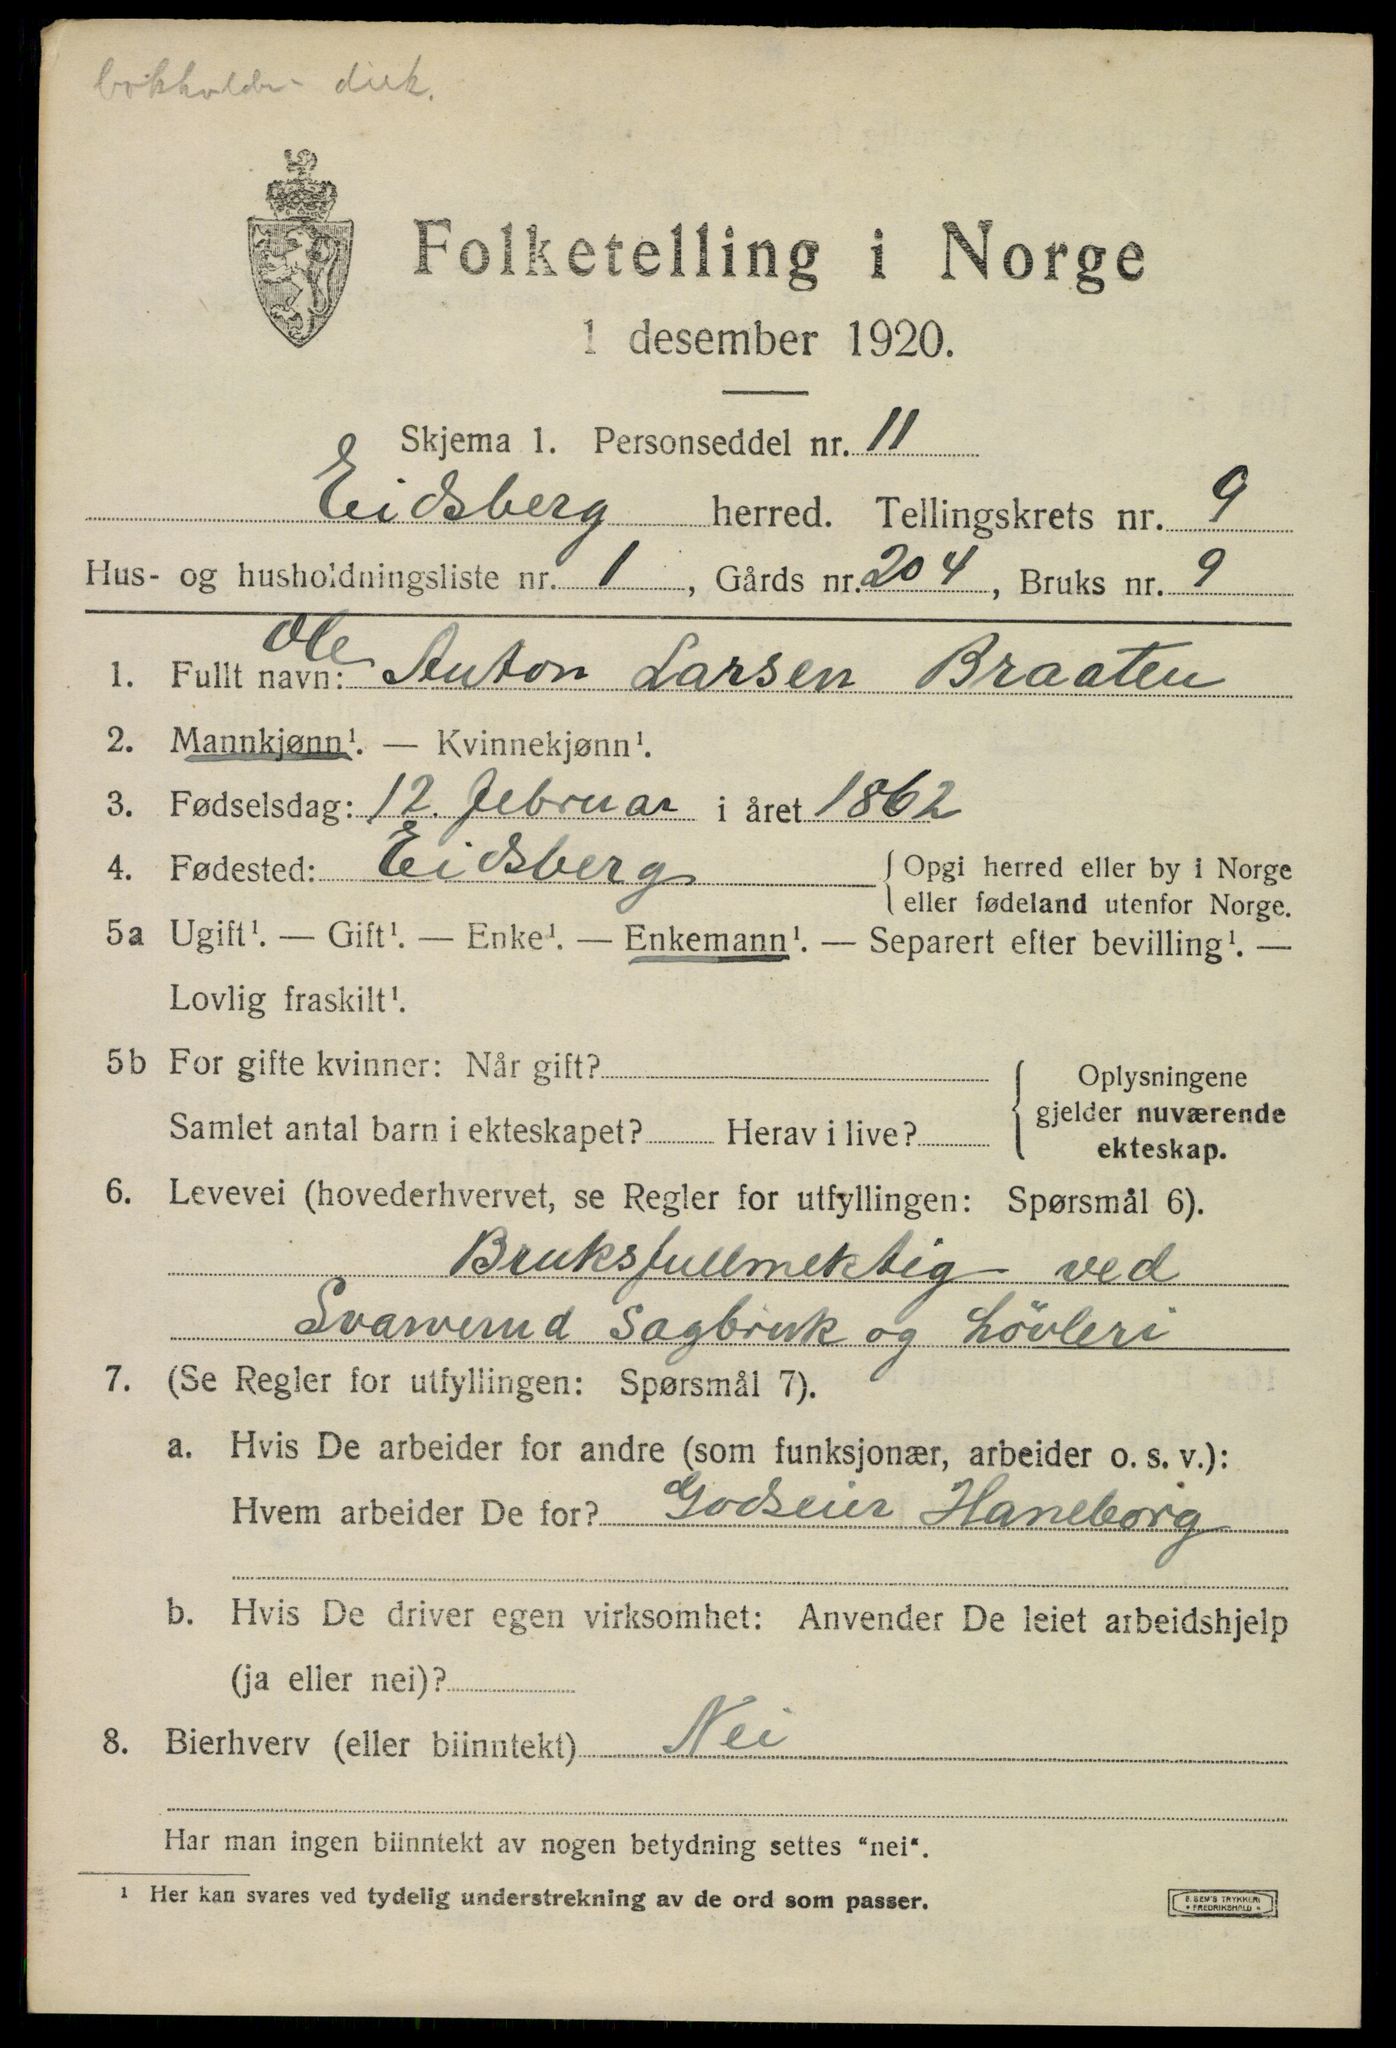 bokholder disk.
Folketelling i Norge
1 desember 1920.
Skjema 1. Personseddel nr. 11
Eidsberg herred. Tellingskrets nr. 9
Hus- og husholdningsliste nr. 1, Gårds nr. 204, Bruks nr. 9
Ole
1. Fullt navn: Anton Larsen Braaten
2. Mannkjønn¹. — Kvinnekjønn¹.
3. Fødselsdag: 12. februar i året 1862
4. Fødested: Eidsberg { Opgi herred eller by i Norge
eller fødeland utenfor Norge.
5a Ugift¹. — Gift¹. — Enke¹. — Enkemann¹. — Separert efter bevilling¹. —
Lovlig fraskilt¹.
5b For gifte kvinner: Når gift?
Samlet antal barn i ekteskapet? Herav i live?
Oplysningene
gjelder nuværende
ekteskap.
6. Levevei (hovederhvervet, se Regler for utfyllingen: Spørsmål 6).
Bruksfullmektig ved
Svarverud Sagbruk og Høvleri
7. (Se Regler for utfyllingen: Spørsmål 7).
a. Hvis De arbeider for andre (som funksjonær, arbeider o. s. v.):
Hvem arbeider De for? Godseier Haneborg
b. Hvis De driver egen virksomhet: Anvender De leiet arbeidshjelp
(ja eller nei)?
8. Bierhverv (eller biinntekt) Nei
Har man ingen biinntekt av nogen betydning settes "nei".
¹ Her kan svares ved tydelig understrekning av de ord som passer.
E. SEM'S TRYKKERI
FREDRIKSHALD